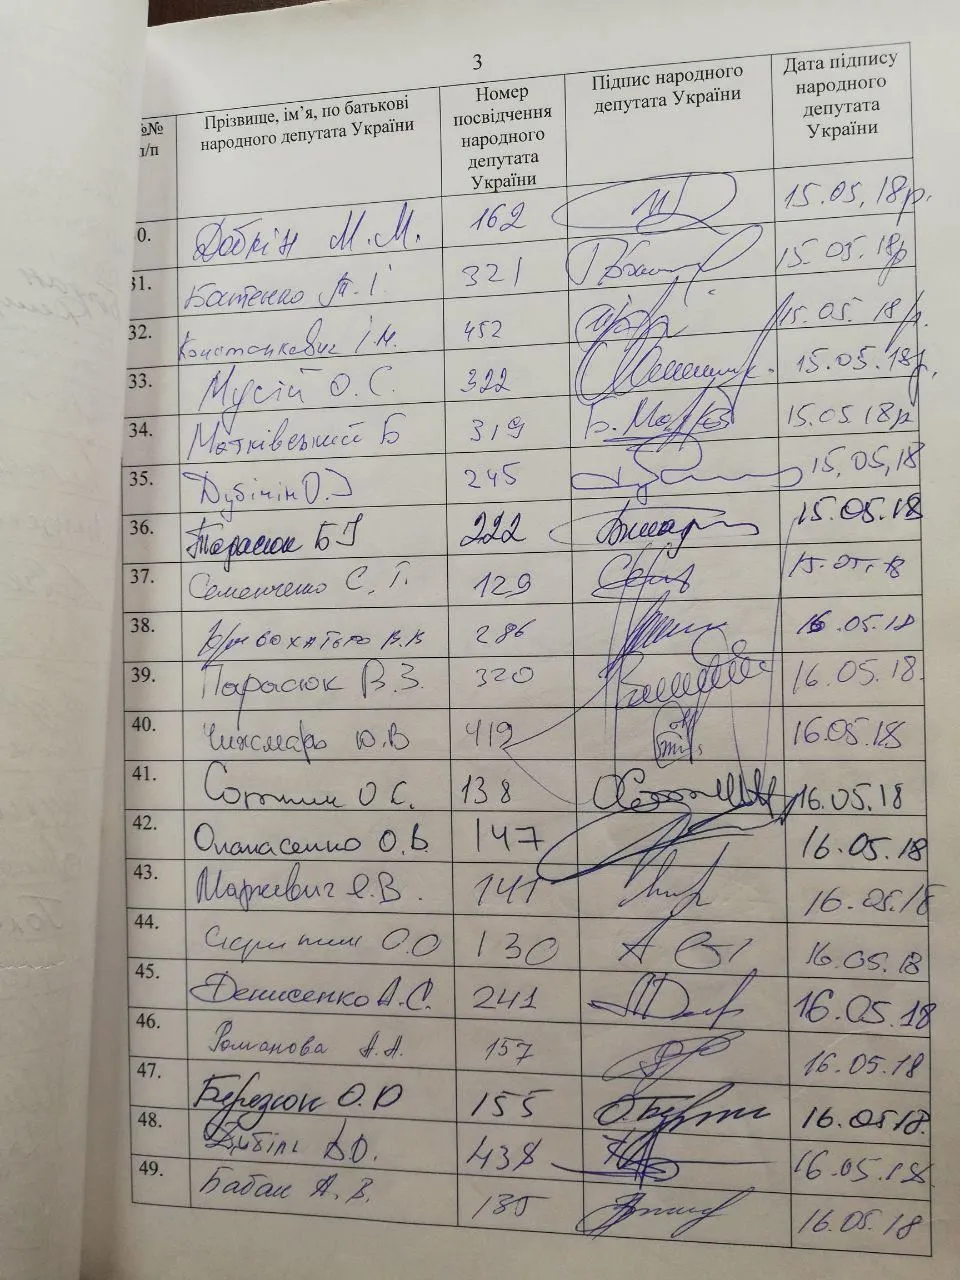 3
№№ Прізвище, ім’я, по батькові Номер Підпис народного Дата підпису
п/п народного депутата України посвідчення депутата України народного
народного депутата
депутата України
України
0. Добкін М.М. 162 15.05.18р.
31. Бастенко Т.І. 321 15.05.18р
32. Констанкевич І.М. 452 15.05.18р.
33. Мусій О.С. 322 15.05.18р.
34. Матківський Б 319 Б. Матків 15.05.18р
35. Дубінін О.І 245 15,05,18
36. Тарасюк Б І 222 15.05.18
37. Семенченко С.І. 129 15.05.18
38. Кривохатько В.В 286 16.05.18
39. Парасюк В.З. 320 16.05.18.
40. Чижмарь Ю.В 419 16.05.18
41. Сотник О С. 138 16.05.18
42. Опанасенко О.В. 147 16.05.18
43. Маркевич Я.В. 141 16.05.18
44. Скрипник О.О 130 16.05.18
45. Денисенко А.С. 241 16.05.18
46. Романова А.А. 157 16.05.18
47. Березюк О.Р 155 О.Березюк 16.05.18.
48. 438 16.05.18
49. Бабак А.В. 135 16.05.18